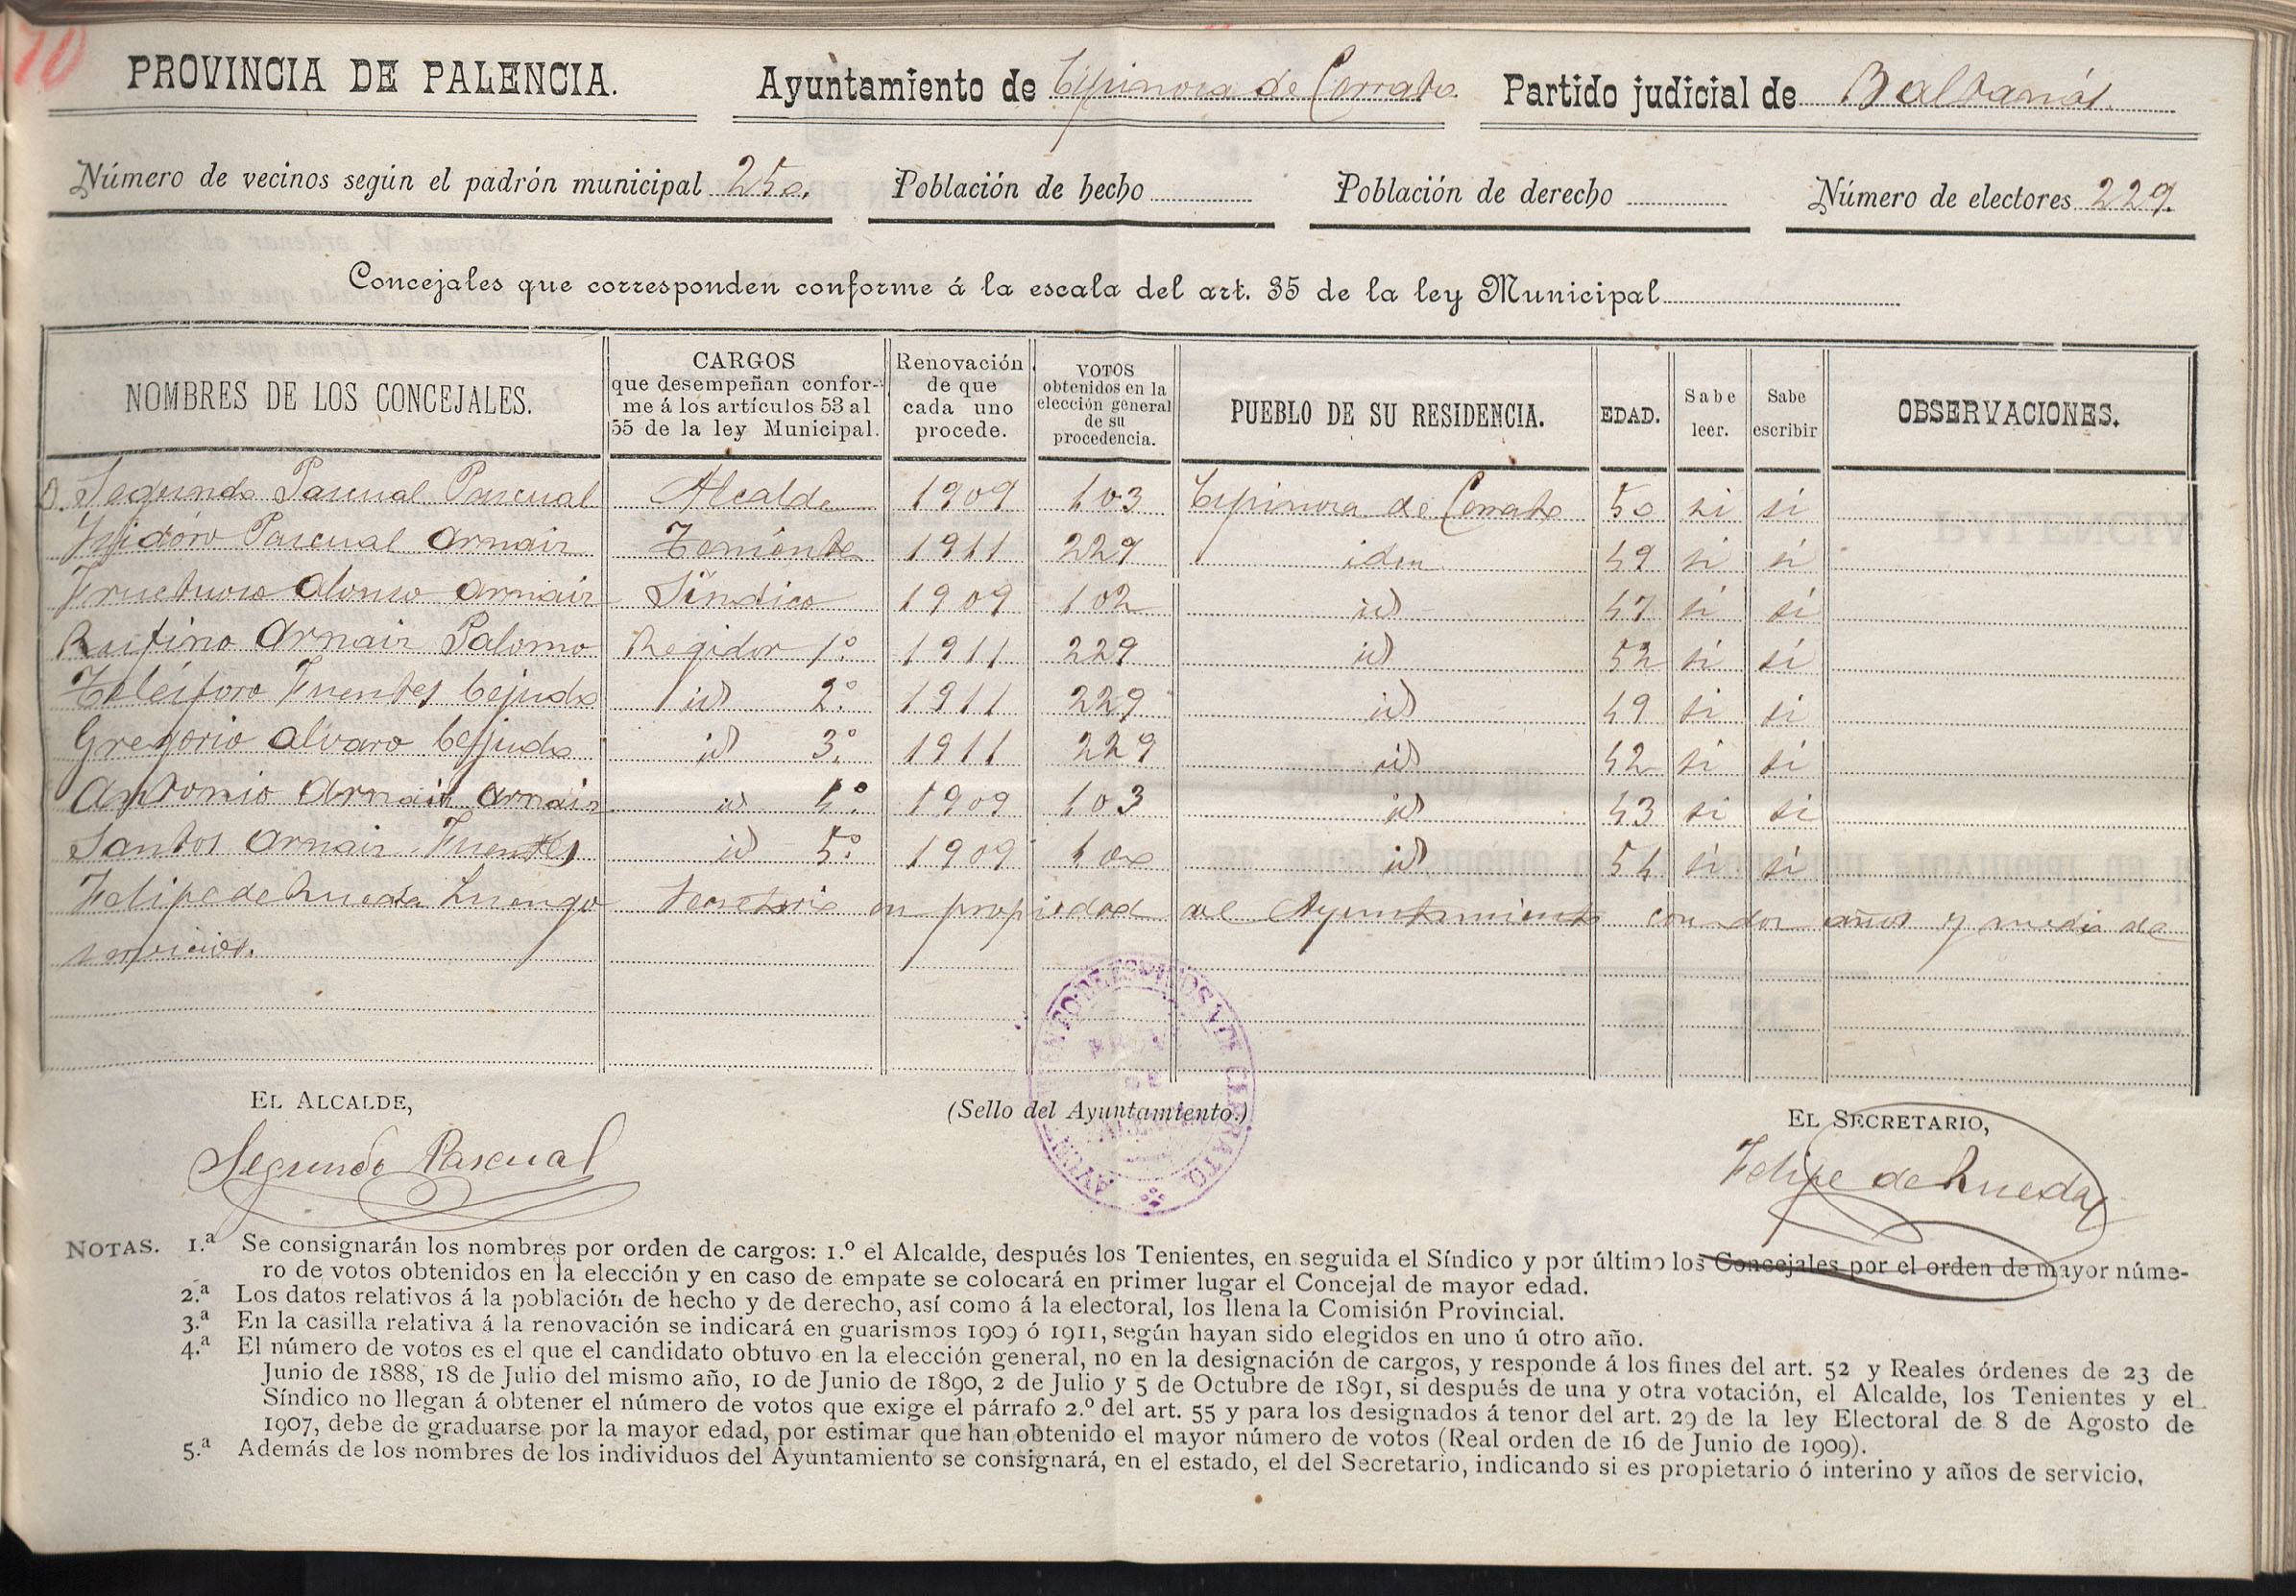 10
PROVINCIA DE PALENCIA. Ayuntamiento de Espinosa de Cerrato. Partido judicial de Baltanás.
Número de vecinos según el padrón municipal 250. Población de hecho Población de derecho Número de electores 229.
Concejales que corresponden conforme á la escala del art. 35 de la ley Municipal
NOMBRES DE LOS CONCEJALES. CARGOS que desempeñan conforme á los artículos 53 al 55 de la ley Municipal. Renovación de que cada uno procede. VOTOS obtenidos en la elección general de su procedencia. PUEBLO DE SU RESIDENCIA. EDAD. Sabe leer. Sabe escribir OBSERVACIONES.
D. Segundo Pascual Pascual Alcalde 1909 103 Espinosa de Cerrato 50 si si
Isidoro Pascual Arnaiz Teniente 1911 229 idem 49 si si
Fructuoso Alonso Arnaiz Síndico 1909 102 id 47 si si
Rufino Arnaiz Palomo Regidor 1.º 1911 229 id 52 si si
Telesforo Fuentes Cejudo id 2.º 1911 229 id 49 si si
Gregorio Alvaro Cejudo id 3.º 1911 229 id 42 si si
Antonio Arnaiz Arnaiz id 4.º 1909 103 id 43 si si
Santos Arnaiz Fuentes id 5.º 1909 100 id 54 si si
Felipe de Rueda Luengo Secretario en propiedad del Ayuntamiento con dos años y medio de
servicios.
EL ALCALDE, (Sello del Ayuntamiento.) EL SECRETARIO,
Segundo Pascual Felipe de Rueda
NOTAS. 1.ª Se consignarán los nombres por orden de cargos: 1.º el Alcalde, después los Tenientes, en seguida el Síndico y por último los Concejales por el orden de mayor núme-
ro de votos obtenidos en la elección y en caso de empate se colocará en primer lugar el Concejal de mayor edad.
2.ª Los datos relativos á la población de hecho y de derecho, así como á la electoral, los llena la Comisión Provincial.
3.ª En la casilla relativa á la renovación se indicará en guarismos 1909 ó 1911, según hayan sido elegidos en uno ú otro año.
4.ª El número de votos es el que el candidato obtuvo en la elección general, no en la designación de cargos, y responde á los fines del art. 52 y Reales órdenes de 23 de
Junio de 1888, 18 de Julio del mismo año, 10 de Junio de 1890, 2 de Julio y 5 de Octubre de 1891, si después de una y otra votación, el Alcalde, los Tenientes y el
Síndico no llegan á obtener el número de votos que exige el párrafo 2.º del art. 55 y para los designados á tenor del art. 29 de la ley Electoral de 8 de Agosto de
1907, debe de graduarse por la mayor edad, por estimar que han obtenido el mayor número de votos (Real orden de 16 de Junio de 1909).
5.ª Además de los nombres de los individuos del Ayuntamiento se consignará, en el estado, el del Secretario, indicando si es propietario ó interino y años de servicio.